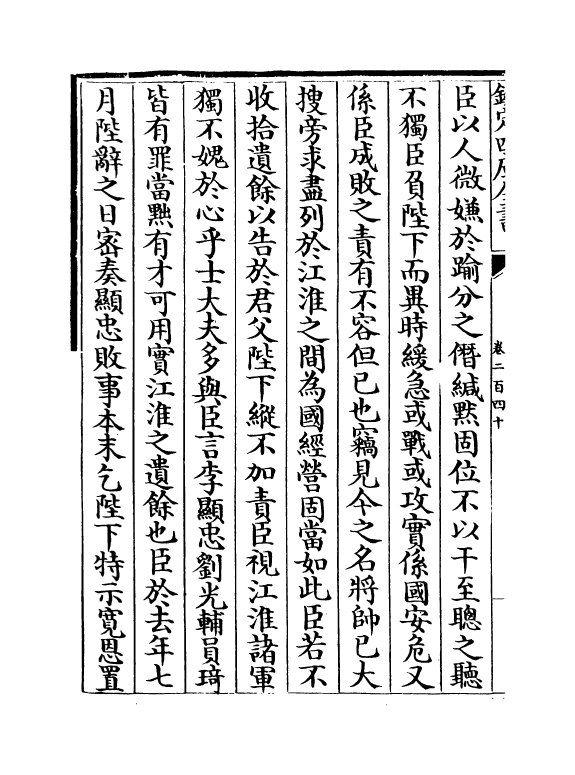 欽定四庫全書
卷二百四十
臣以人微嫌於踰分之僭緘默固位不以干至聰之聽
不獨臣負陛下而異時緩急或戰或攻實係國安危又
係臣成敗之責有不容但已也竊見今之名將帥已大
搜旁求盡列於江淮之間為國經營固當如此臣若不
收拾遺餘以告於君父陛下縱不加責臣視江淮諸軍
獨不媿於心乎士大夫多與臣言李顯忠劉光輔員琦
皆有罪當黜有才可用實江淮之遺餘也臣於去年七
月陛辭之日密奏顯忠敗事本末乞陛下特示寬恩置